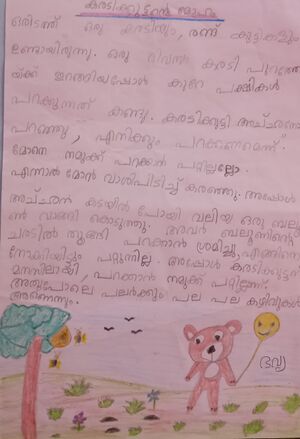 കരടിക്കുട്ടൻ്റെ മോഹം
ഒരിടത്ത് ഒരു കരടിയും, രണ്ട് കുട്ടികളും
ഉണ്ടായിരുന്നു. ഒരു ദിവസം കരടി പുറത്തേ
യ്ക്ക് ഇറങ്ങിയപ്പോൾ കുറെ പക്ഷികൾ
പറക്കുന്നത് കണ്ടു. കരടിക്കുട്ടി അച്ഛനോട്
പറഞ്ഞു, എനിക്കും പറക്കണമെന്ന്.
മോനെ നമുക്ക് പറക്കാൻ പറ്റില്ലല്ലോ.
എന്നാൽ മോൻ വാശിപിടിച്ച് കരഞ്ഞു. അപ്പോൾ
അച്ഛൻ കടയിൽ പോയി വലിയ ഒരു ബലൂ
ൺ വാങ്ങി കൊടുത്തു. അവർ ബലൂണിന്റെ
ചരടിൽ തൂങ്ങി പറക്കാൻ ശ്രമിച്ചു. എങ്ങിനെ
നോക്കിയിട്ടും പറ്റുന്നില്ല. അപ്പോൾ കരടിക്കുട്ടന്
മനസിലായി, പറക്കാൻ നമുക്ക് പറ്റില്ലെന്ന്.
അതുപോലെ പലർക്കും പല പല കഴിവുകൾ
ആണെന്നും.
ഭവ്യ